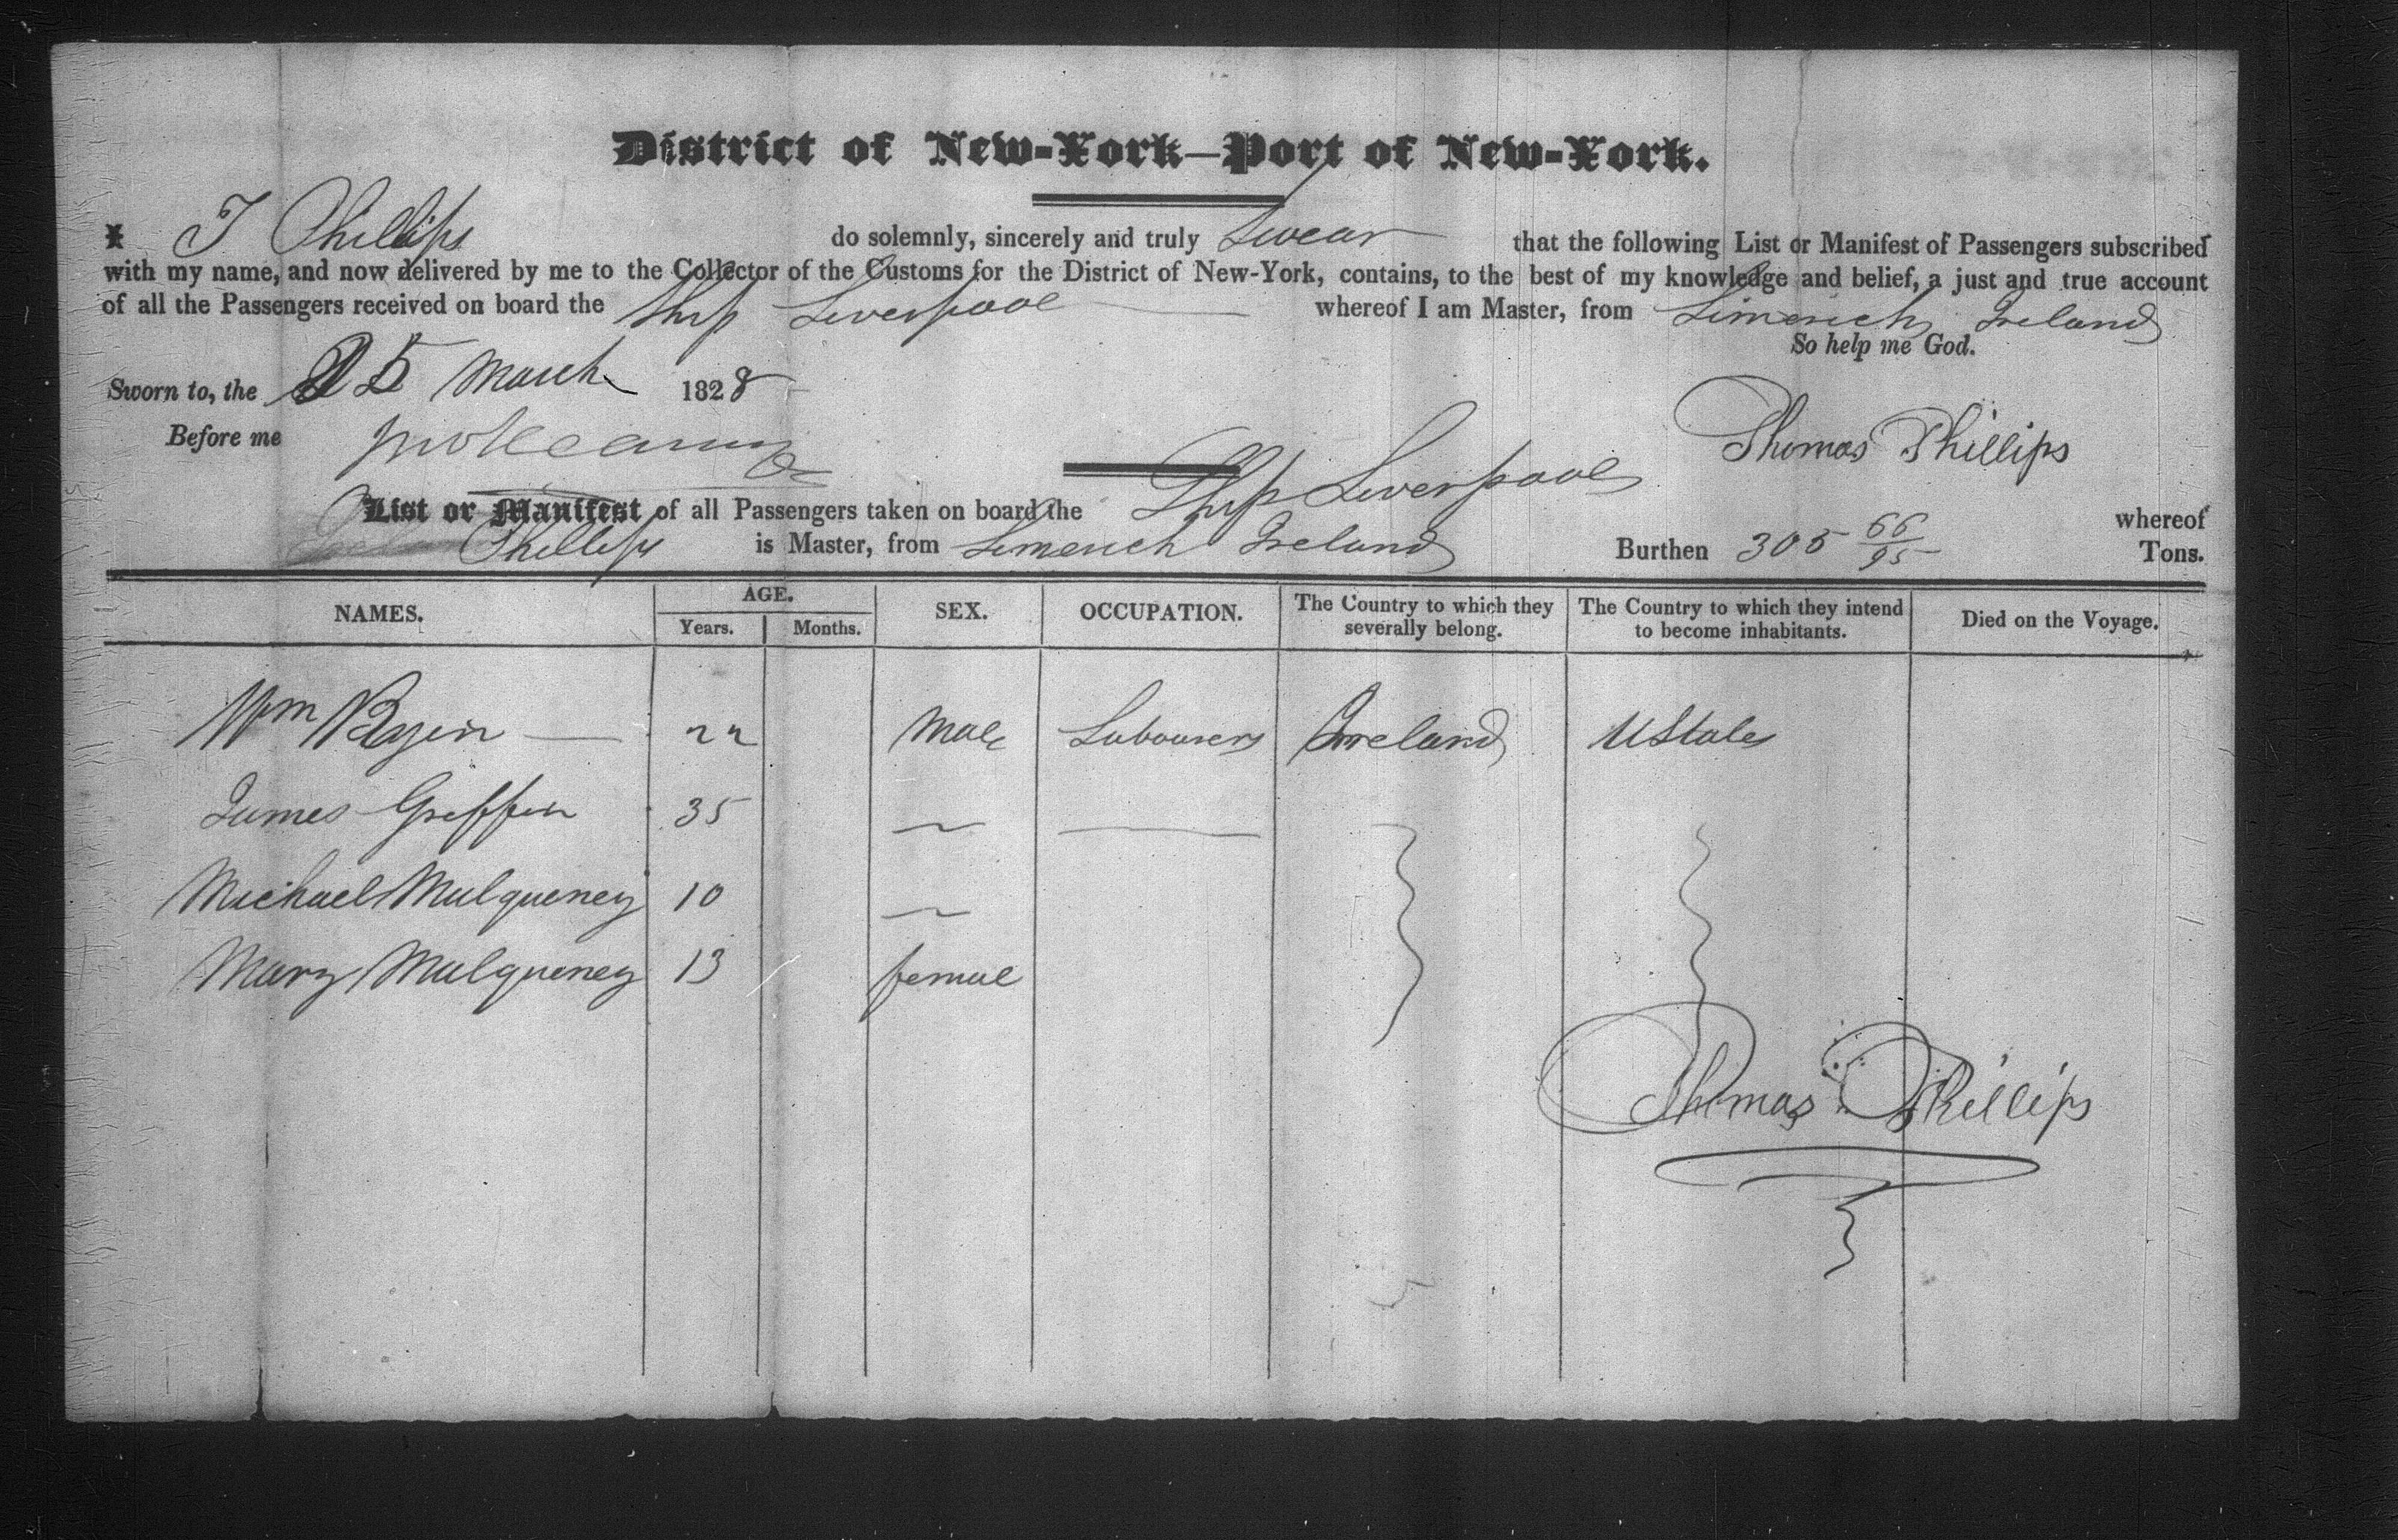 District of New-York—Port of New-York.
I T Phillips do solemnly, sincerely and truly Swear that the following List or Manifest of Passengers subscribed
with my name, and now delivered by me to the Collector of the Customs for the District of New-York, contains, to the best of my knowledge and belief, a just and true account
of all the Passengers received on board the Ship Liverpool whereof I am Master, from Limerick Ireland
So help me God.
Sworn to, the 25 March 1828
Before me
Thomas Phillips
List or Manifest of all Passengers taken on board the Ship Liverpool whereof
Phillips is Master, from Limerick Ireland Burthen 305 66/95 Tons.
NAMES. AGE. Years. Months. SEX. OCCUPATION. The Country to which they severally belong. The Country to which they intend to become inhabitants. Died on the Voyage.
Wm 22 Male Labourers Ireland UStates
James Griffin 35
Michael Mulqueney 10
Mary Mulqueney 13 femal
Thomas Phillips